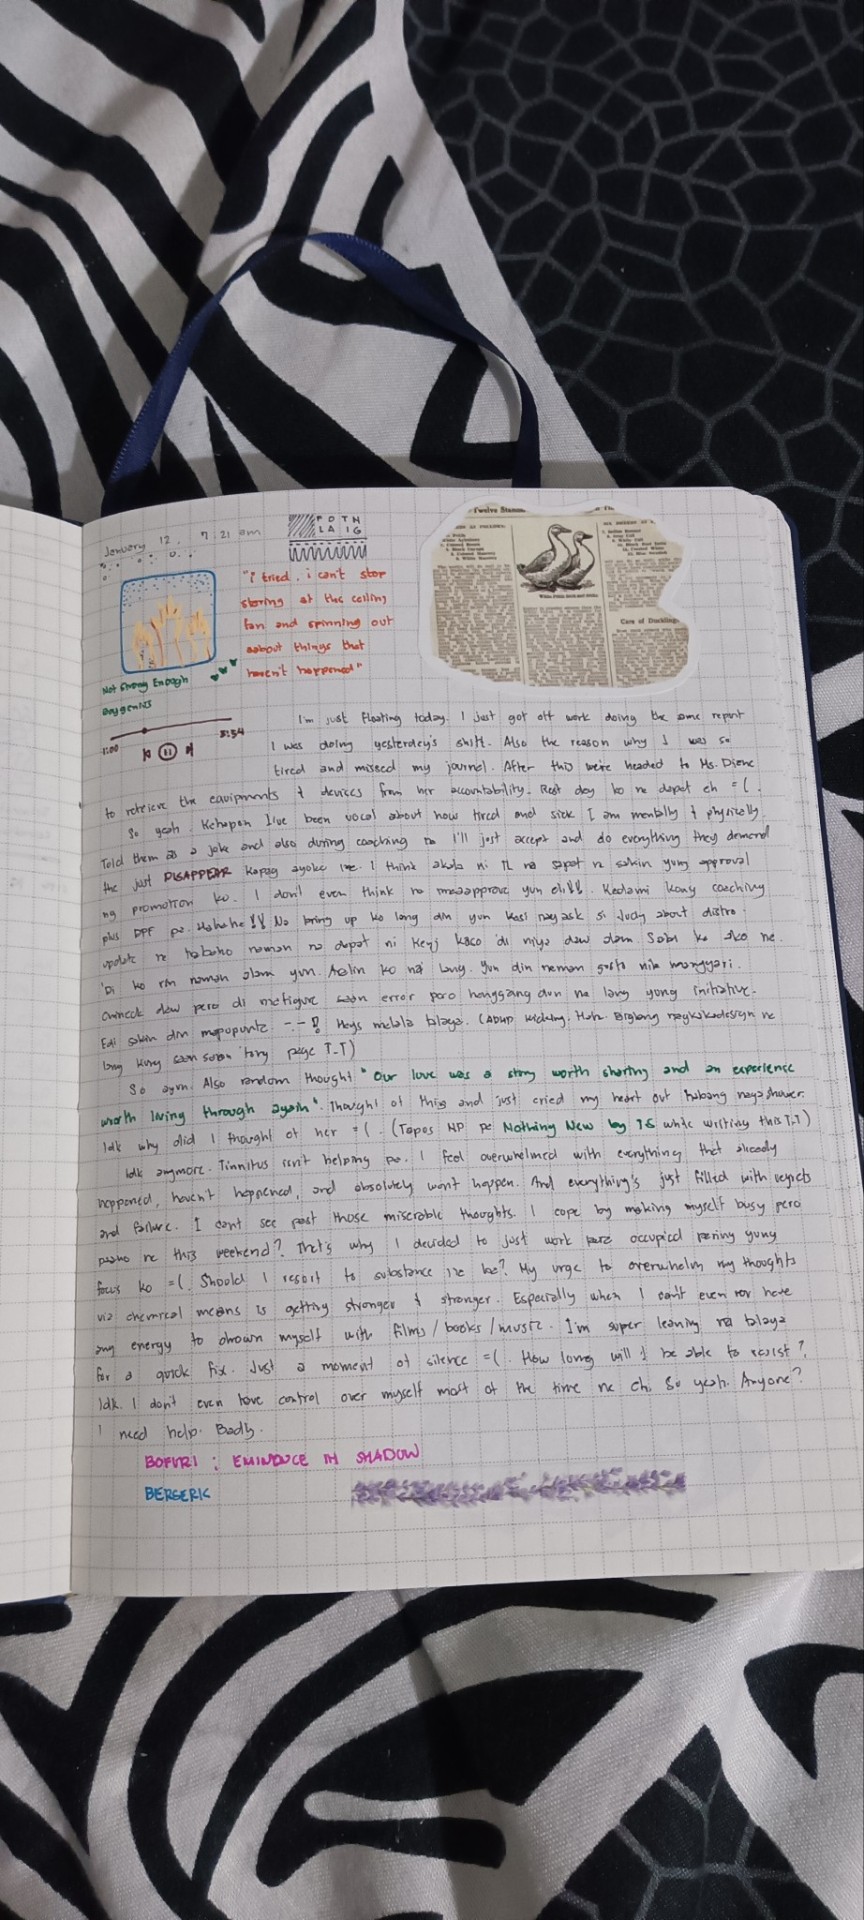 January 12. 7:21 am
"i tried, i can't stop
staring at the ceiling
fan and spinning out
about things that
haven't happened"
Twelve Stand
White Pekin duck and drake.
Care of Ducklings
Not Strong Enough
boygenius
1:00
3:54
I'm just floating today. I just got off work doing the same report
I was doing yesterday's shift. Also the reason why I was so
tired and missed my journal. After this we're headed to Ms. Diane
to retrieve the equipments & devices from her accountability. Rest day ko na dapat eh =(.
So yeah. Kahapon I've been vocal about how tired and sick I am mentally & physically
Told them as a joke and also during coaching na I'll just accept and do everything they demand
the just DISAPPEAR kapag ayoko na. I think akala ni TL na sapat na sakin yung approval
ng promotion ko. I don't even think na maaapprove yun eh!!. Kadami kong coaching
plus DPF pa. Hahaha!! Na bring up ko lang din yun kasi nag ask si Judy about distro
update na trabaho naman na dapat ni Keyj kaso di niya daw alam. Sabi ko ako na.
'Di ko rin naman alam yun. Aalin ko na lang. Yun din naman gusto nila mangyari.
Chineck daw pero di mafigure saan error pero hanggang dun na lang yung initiative.
Edi sakin din mapupunta --? Hays malala talaga.
lang king saan saan 'tong page T_T)
So ayun. Also random thought "Our love was a story worth sharing and an experience
worth living through again". Thought of this and just cried my heart out habang nagsshower.
Idk why did I thought of her =(. (Tapos NP pa Nothing New by TS while writing this T.T)
Idk anymore. Tinnitus isn't helping pa. I feel overwhelmed with everything that already
happened, haven't happened, and absolutely won't happen. And everything's just filled with regrets
and failure. I dont see past those miserable thoughts. I cope by making myself busy pero
paano na this weekend? That's why I decided to just work para occupied parin yung
focus ko =(. Should I resort to substance na ba? My urge to overwhelm my thoughts
via chemical means is getting stronger & stronger. Especially when I can't even have
any energy to drown myself with films/books/music. I'm super leaning na talaga
for a quick fix. Just a moment of silence =(. How long will I be able to resist?
Idk. I don't even have control over myself most of the time na eh. So yeah. Anyone?
I need help. Badly.
BOFURI ; EMINDUCE IN SHADOW
BERSERK